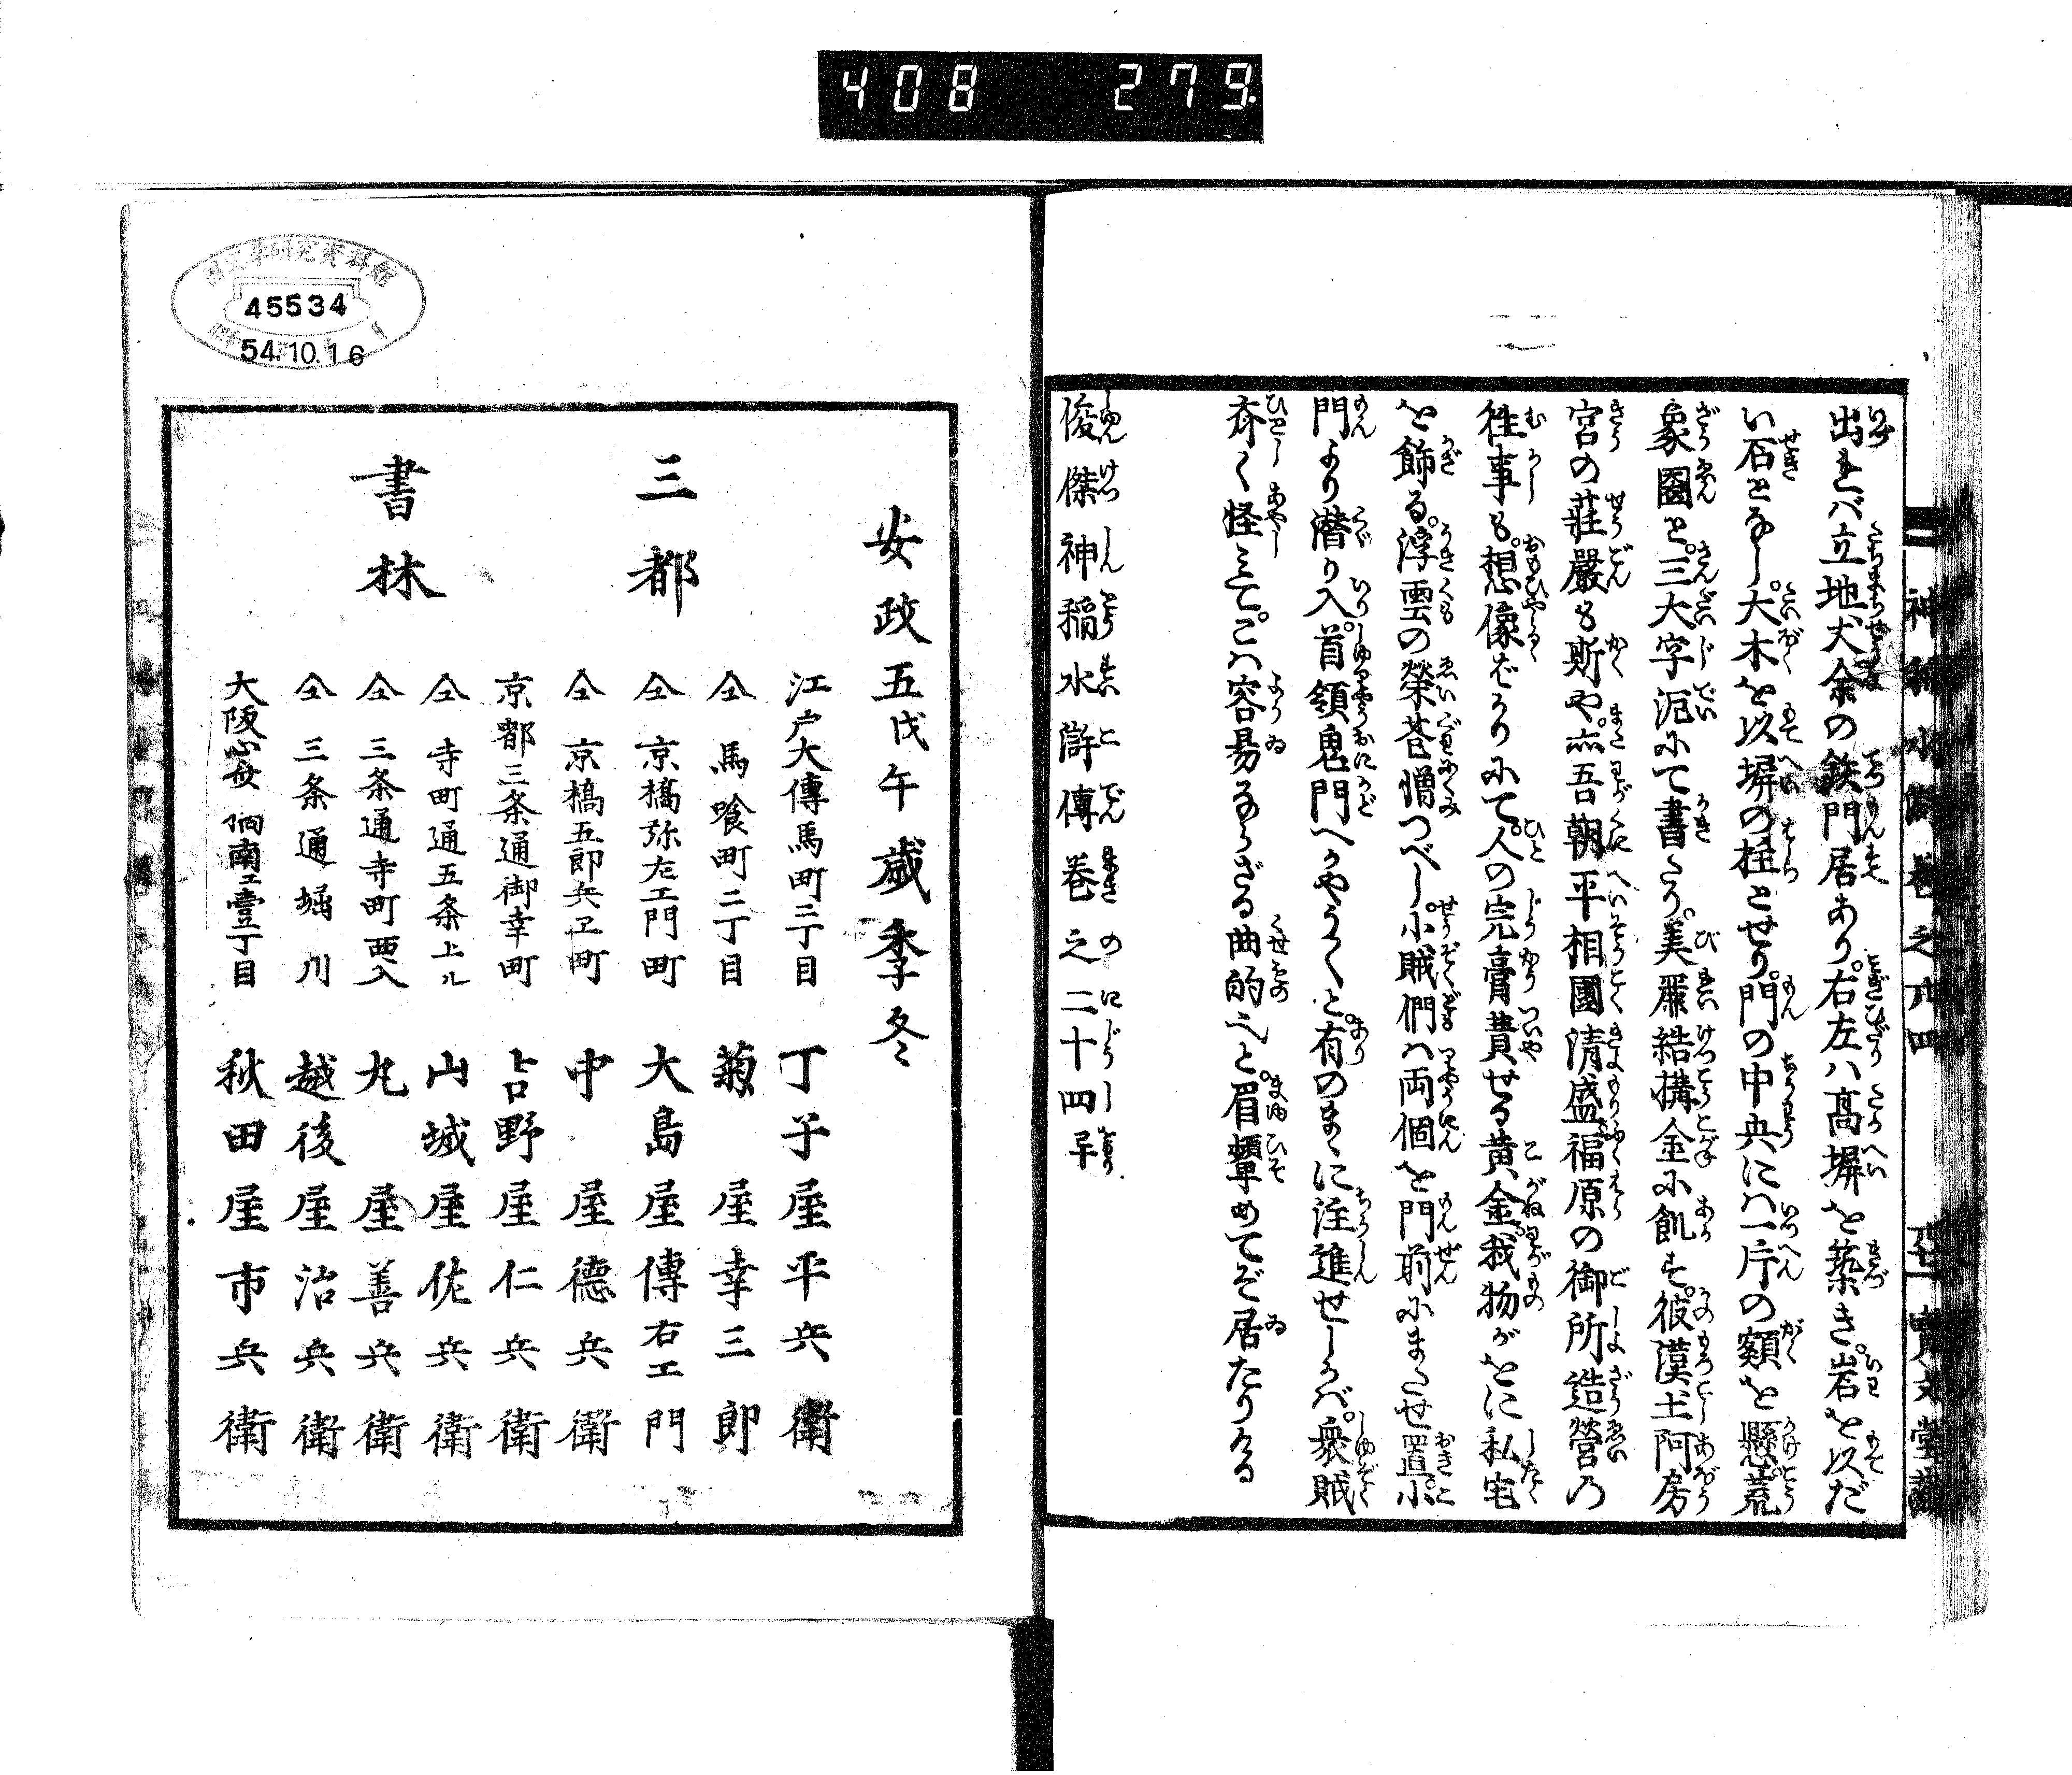 408 279
出れバ立地丈余の鉄門居あり。右左ハ高塀を築き。岩を以だ
い石となし。大木を以塀の柱とせり。門の中央にハ一片の額を懸。荒
象園と。三大字泥にて書たり。美麗結構金に飢ず。彼漢土阿房
宮の荘嚴も斯や。亦吾朝平相國清盛福原の御所造営の
徃事も。想像ばかりにて。人の完膏費せる黄金。我物がほに私宅
を飾る。浮雲の榮
憎つべし。小賊們ハ両個を門前にまたせ置。小
門より潜り入。首領鬼門へかやう〳〵と。有のまゝに注進せしかバ。衆賊
斉く怪みて。こハ容易ならざる曲的
と。眉顰めてぞ居たりける
俊傑神稲水滸傳巻之二十四早
神稲水滸 巻之廾四
寶文堂藏
国文学研究資料館
45534
54.10.16
安政五戊午歳季冬
三都
書林
江戸大傳馬町三丁目 丁子屋平兵衛
仝 馬喰町二丁目 菊屋幸三郎
仝 京橋弥左エ門町 大島屋傳右エ門
仝 京橋五郎兵エ町 中屋徳兵衛
京都三条通御幸町 吉野屋仁兵衛
仝 寺町通五条上ル 山城屋佐兵衛
仝 三条通寺町西入 丸屋善兵衛
仝 三条通堀川 越後屋治兵衛
大阪心斎橋南エ壹丁目 秋田屋市兵衛